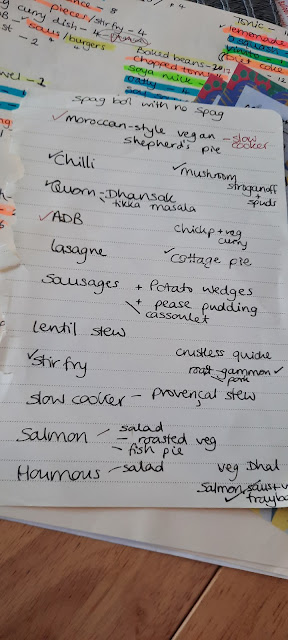 curry dish - 4
pieces/stir fry - 4
saus/burgers
Baked beans - 20
chopped toms
soya milk
Tonic
lemonade
diet coke
spag bol with no spag
✓moroccan-style vegan - slow cooker
shepherd's pie
✓Chilli
✓mushroom stroganoff + spuds
✓Quorn - Dhansak
tikka masala
✓ADB
chickp + veg curry
lasagne
✓cottage pie
Sausages + potato wedges
+ pease pudding
cassoulet
lentil stew
✓stir fry
crustless quiche
roast - gammon ✓
pork
slow cooker - provençal stew
Salmon - salad
- roasted veg
- fish pie
Houmous - salad
veg Dhal
Salmon, saus + v
✓ trayba